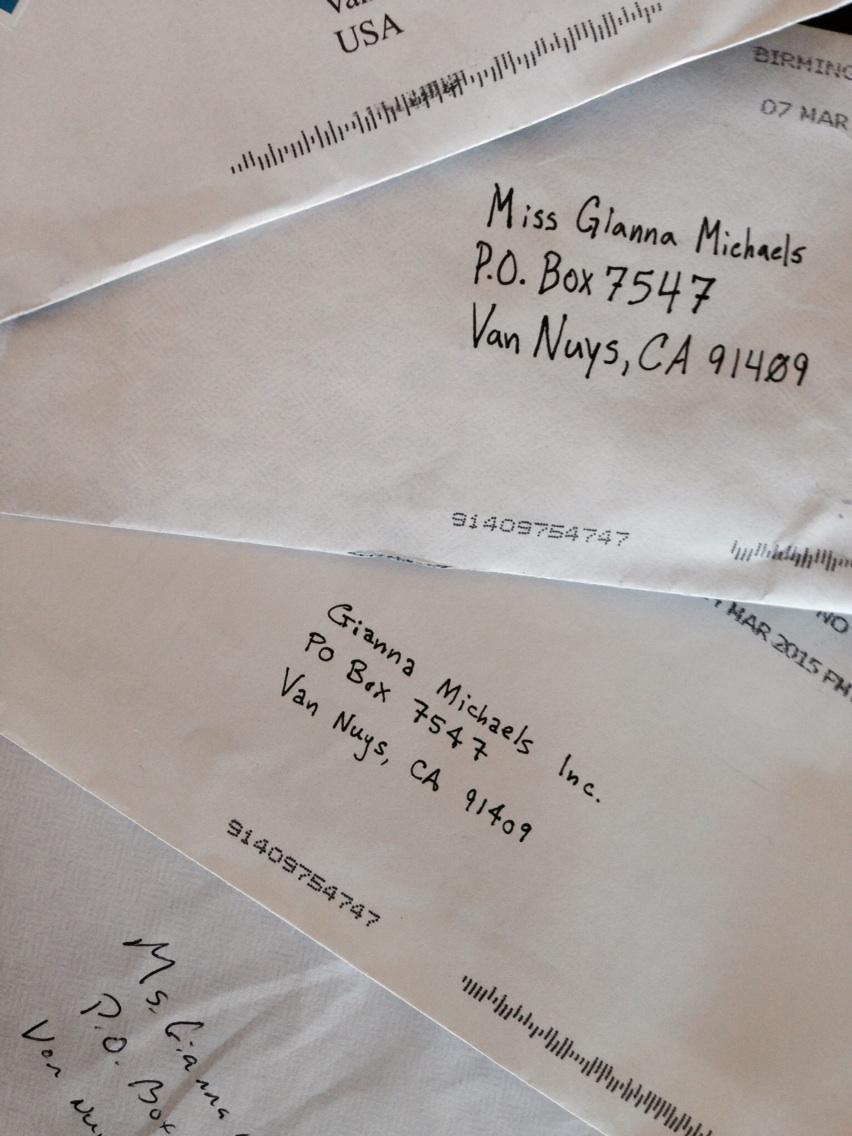 USA
BIRMING
07 MAR
Miss Gianna Michaels
P.O. Box 7547
Van Nuys, CA 91409
91409754747
NO
MAR 2015 PM
Gianna Michaels Inc.
PO Box 7547
Van Nuys, CA 91409
91409754747
Ms. Gianna
P.O. Box
Van Nu